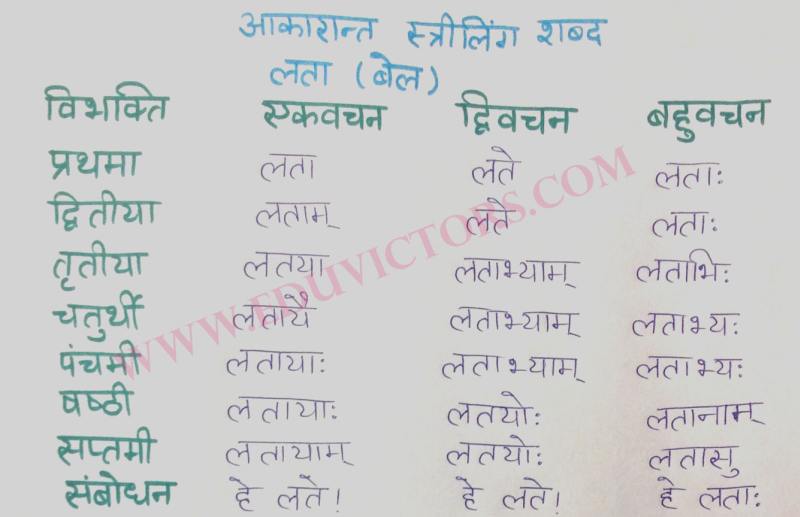 आकारान्त स्त्रीलिंग शब्द
लता (बेल)
विभक्ति एकवचन द्विवचन बहुवचन
प्रथमा लता लते लताः
द्वितीया लताम् लते लताः
तृतीया लतया लताभ्याम् लताभिः
चतुर्थी लतायै लताभ्याम् लताभ्यः
पंचमी लतायाः लताभ्याम् लताभ्यः
षष्ठी लतायाः लतयोः लतानाम्
सप्तमी लतायाम् लतयोः लतासु
संबोधन हे लते! हे लते! हे लताः
WWW.EDUVICTORS.COM